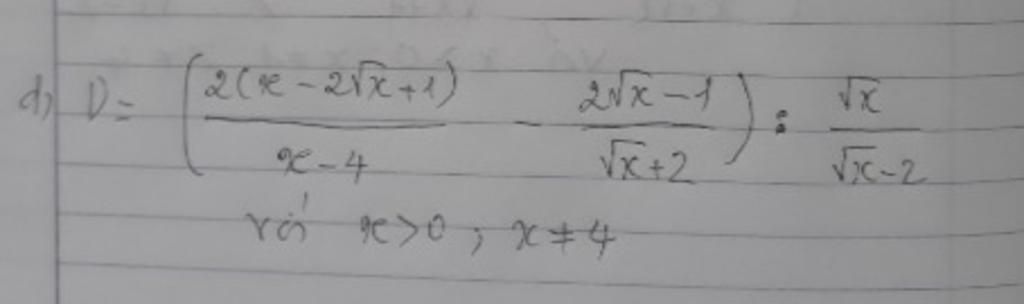 d) D = ( 2(x - 2√x + 1) / x - 4 - 2√x - 1 / √x + 2 ) : √x / √x - 2
với x > 0 ; x ≠ 4